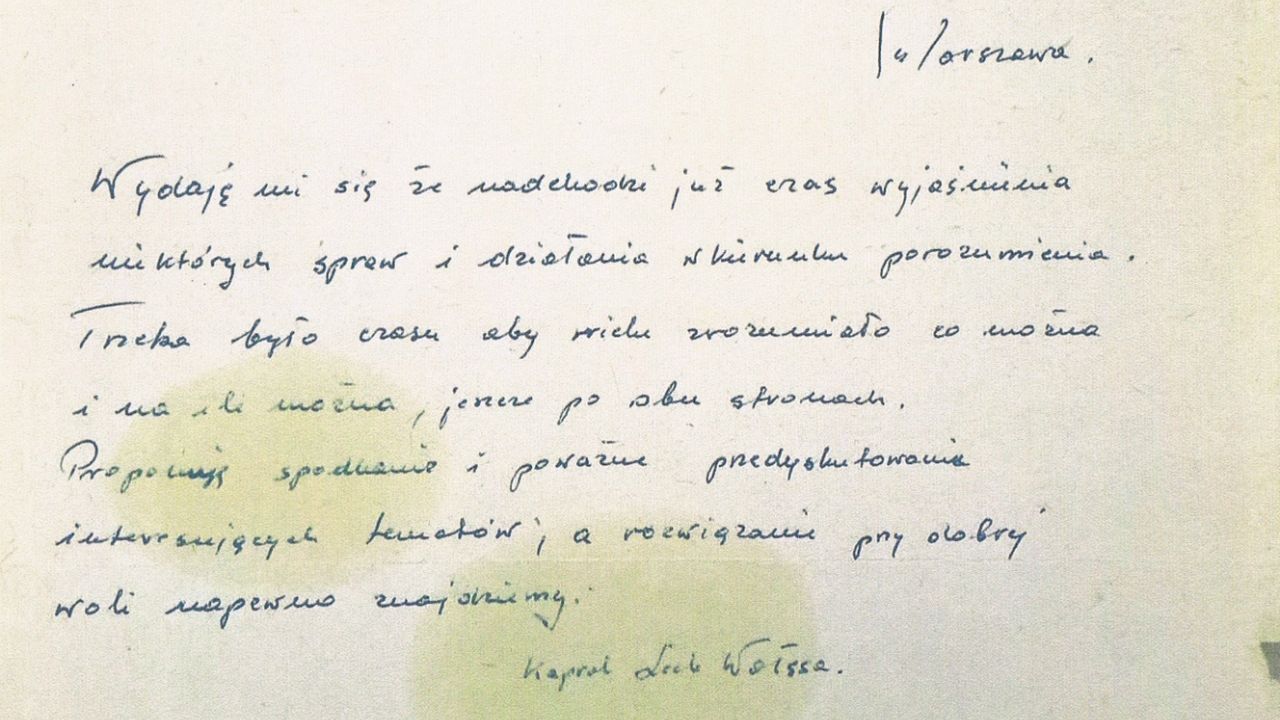 w/Warszawa.
Wydaję mi się że nadchodzi już czas wyjaśninia
niektórych spraw i działania w kierunku porozumienia.
Trzeba było czasu aby wielu zrozumiało co można
i na ile można, jeszcze po obu stronach.
Proponuję spotkanie i poważne przedyskutowanie
interesujących tematów, a rozwiązanie przy dobrej
woli napewno znajdziemy.
Kapral Lech Wałęsa.